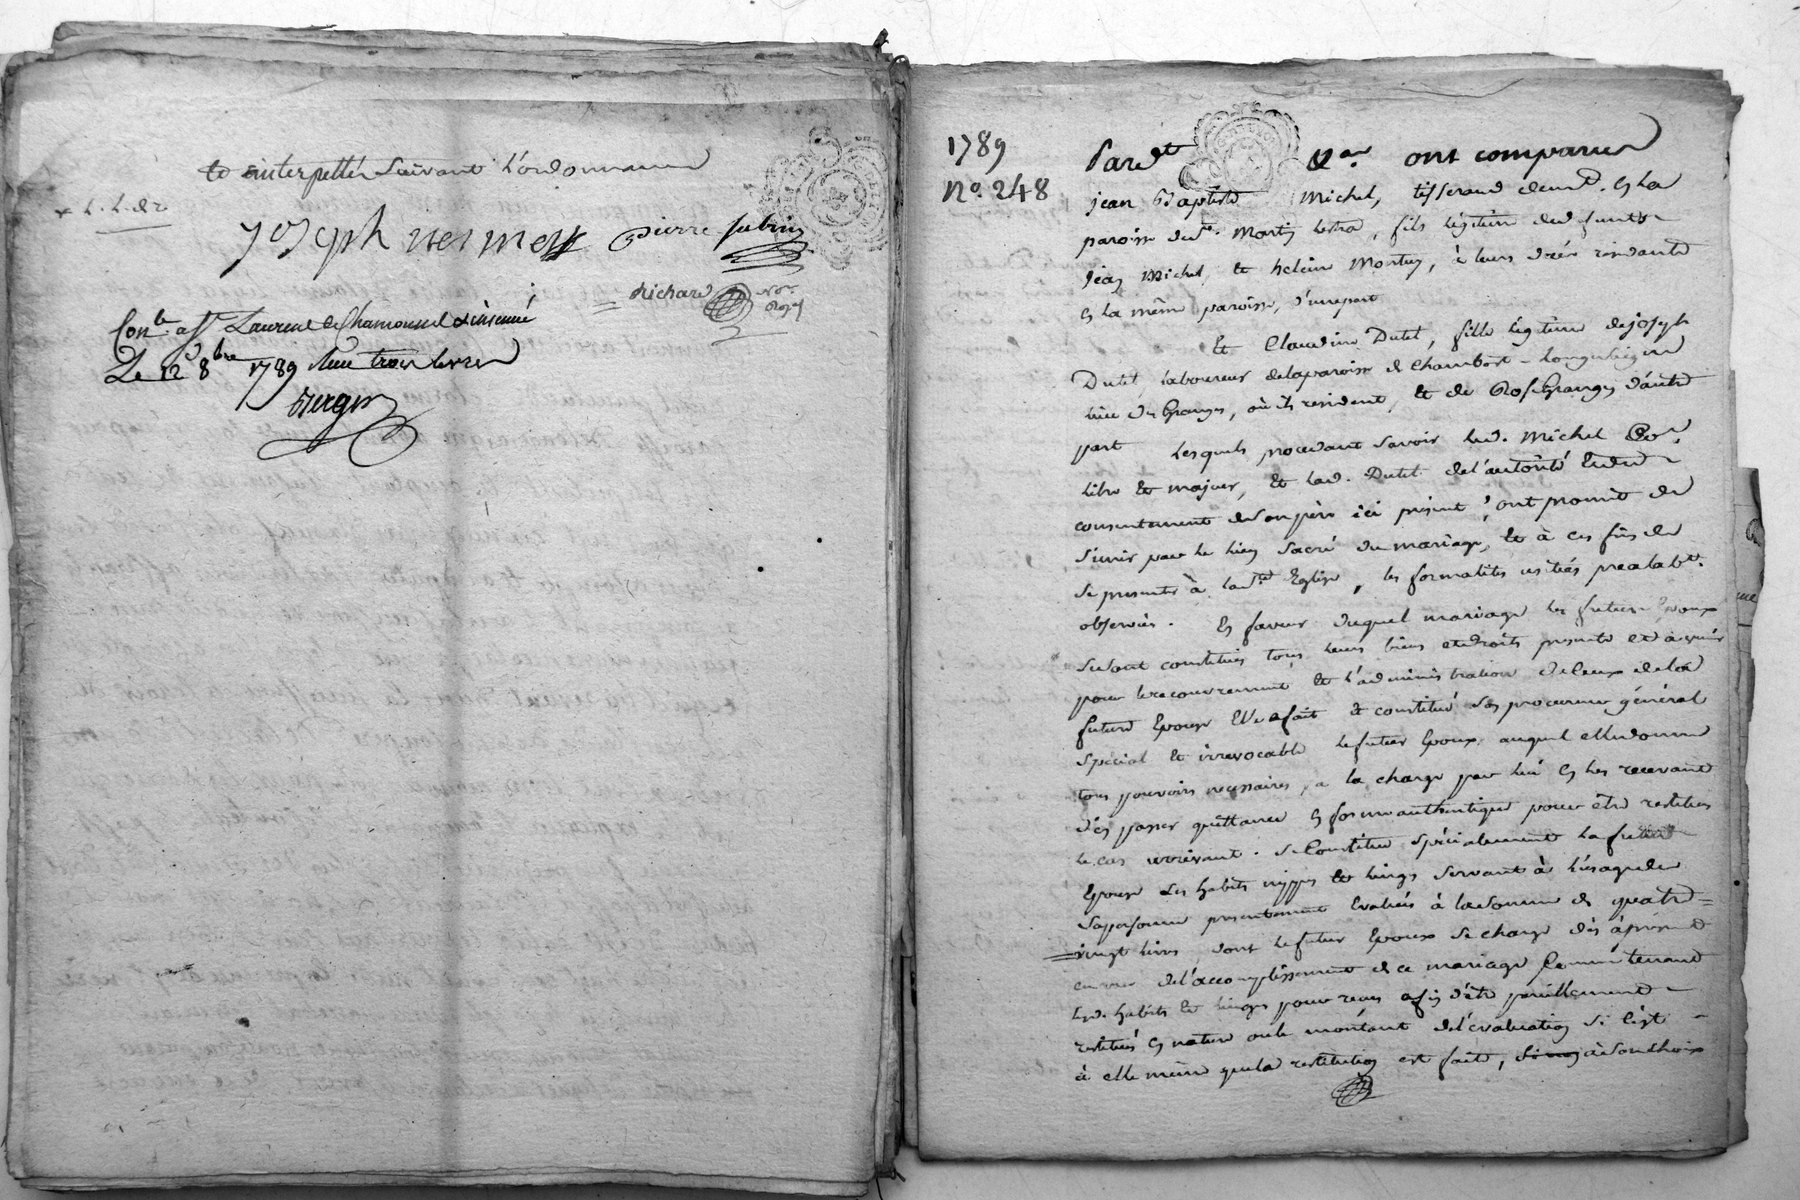 et interpellés suivant l'ordonnance
joseph nesmess pierre fabrin
Richard Nore Royal
Conle. a St. Laurent de Chamousset & insinué
Le 12 8bre 1789 Reçu trois livres
Berger
1789
No. 248
Pardt ont comparu
jean Baptiste Michel, tisserand demt. en la
paroisse de St. Martin Lestra, fils légitime des funts
Jean Michel, et heleine Montuy, à leurs décès résidants
en la même paroisse, d'une part
Et Claudine Dutel, fille légitime de joseph
Dutel, laboureur de la paroisse de Chambost-Longuesaigne
lieu des Granges, où ils resident, et de Granges d'autre
part Lesquels procedant savoir led. Michel
libre et majeur, et lad. Dutel de l'autorité et du
consentement de son père ici présent, ont promis de
s'unir par le lien sacré du mariage, et à ces fins de
se presenter à la Ste Eglise, les formalités usitées préalablt.
observées. En faveur duquel mariage les futurs Epoux
se sont constitués tous leurs biens et droits presents et à venir
pour le recouvrement et l'administration de ceux de la
future Epouse Elle a fait et constitué son procureur général
spécial et irrevocable le futur Epoux auquel elle donne
tous pouvoirs necessaires, à la charge par lui en les recevant
d'en passer quittance en forme authentique pour être restitués
le cas arrivant. Se Constitue spécialement la future
Epouse ses habits nippes et linges servant à l'usage de
sa personne présentement Evalués à la somme de quatre=
=vingt livres, dont le futur Epoux se charge dès à présent
en vue de l'accomplissement de ce mariage
lesd. habits et linges pour reçus afin d'être pareillement
restitués en nature ou le montant de l'évaluation si c'est
à elle même que la restitution est faite, à son choix